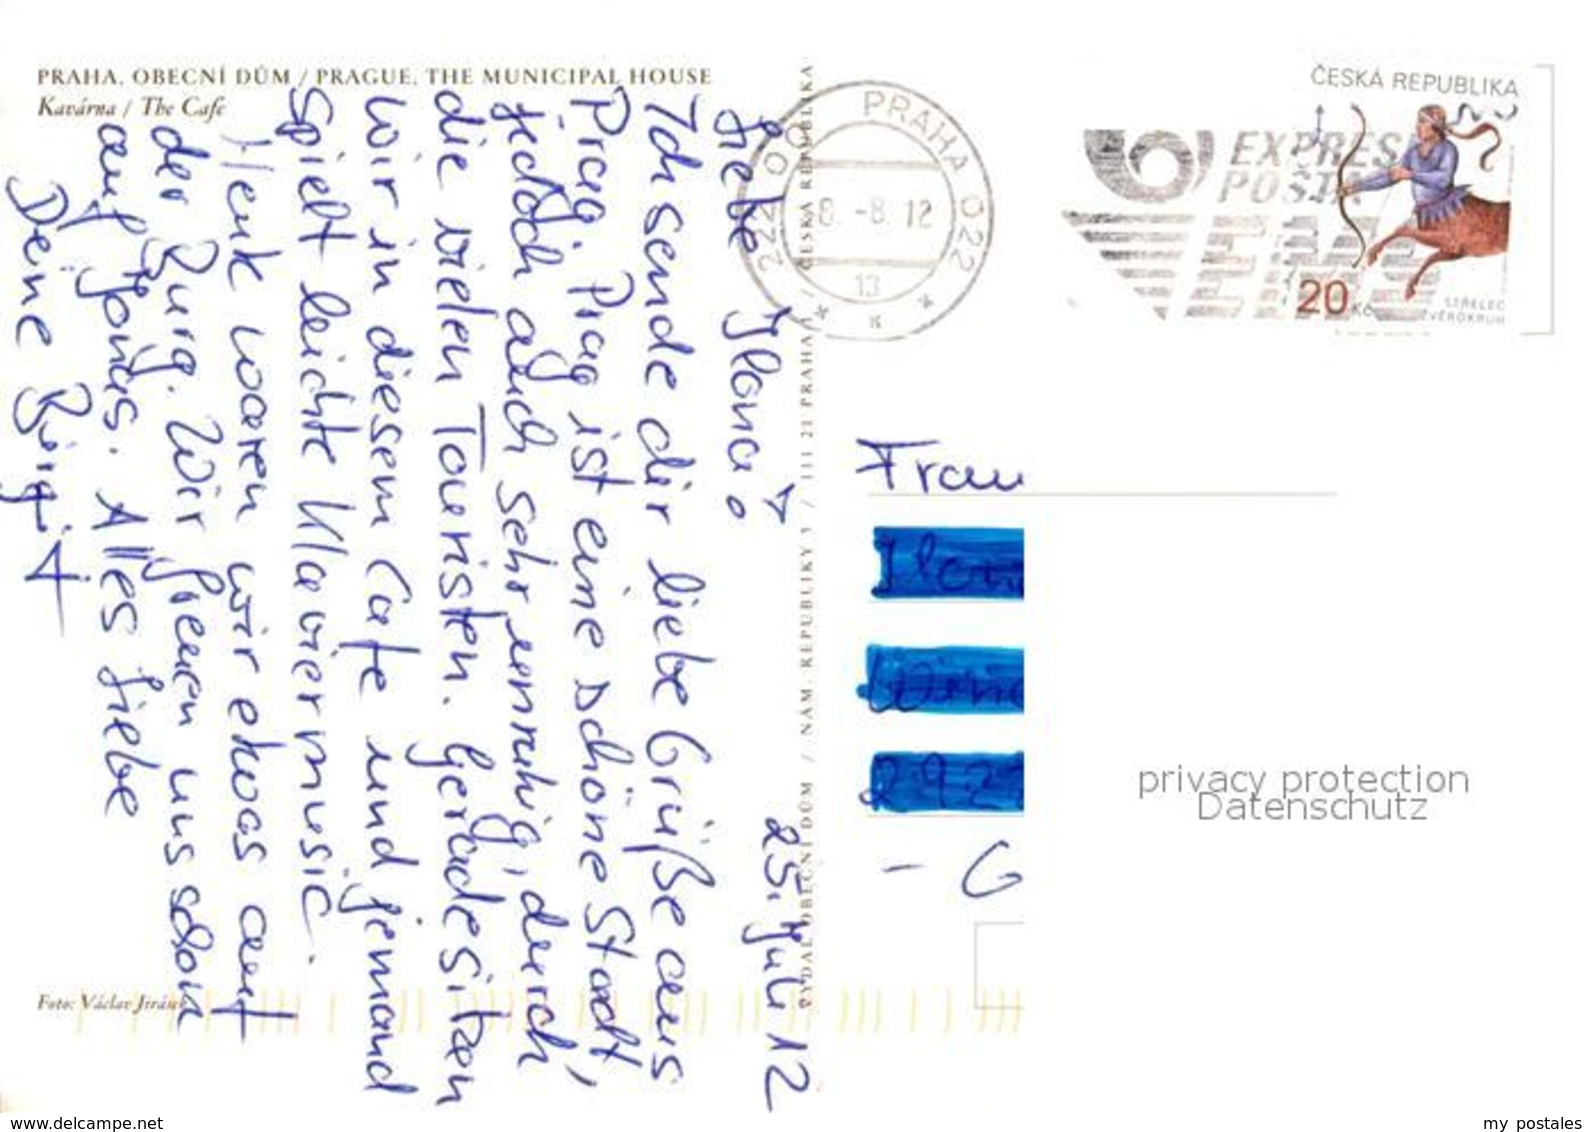 PRAHA, OBECNÍ DŮM / PRAGUE, THE MUNICIPAL HOUSE
Kavárna / The Cafe
25. Juli 12
Liebe Ilona!
Ich sende dir liebe Grüße aus
Prag. Prag ist eine schöne Stadt,
jedoch auch sehr unruhig, durch
die vielen Touristen. Gerade sitzen
wir in diesem Cafe und jemand
spielt leichte Klaviermusic.
Heuk waren wir etwas auf
der Burg. Wir freuen uns schon
auf Jonas. Alles Liebe
Deine Birgit
Foto: Václav Jirásek
VYDAL OBECNÍ DŮM / NÁM. REPUBLIKY 5 / 111 21 PRAHA 1 / ČESKÁ REPUBLIKA
PRAHA 022
222 00
8. -8. 12
13
EXPRES
POSTA
EMS
ČESKÁ REPUBLIKA
20 Kč
STŘELEC
ZVĚROKRUH
Frau
privacy protection
Datenschutz
www.delcampe.net
my_postales